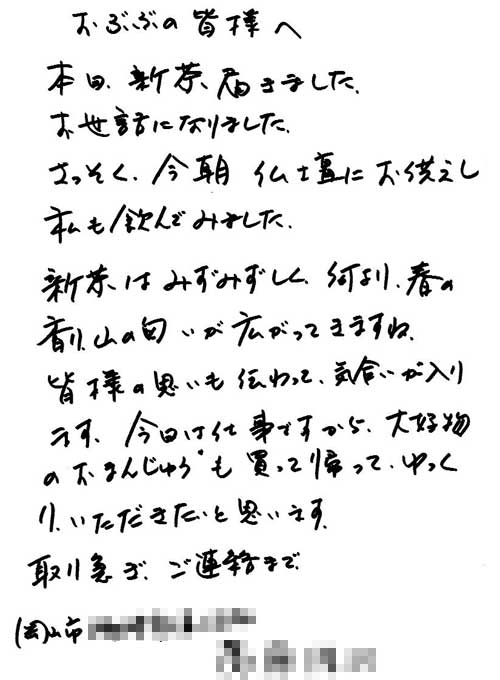 おぶぶの皆様へ
本日、新茶、届きました。
お世話になりました。
さっそく、今朝 仏壇にお供えし
私も飲んでみました。
新茶はみずみずしく、何より、春の
香り、山の匂いが広がってきますね。
皆様の思いも伝わって、気合いが入り
ます。今日は仕事ですから、大好物
のおまんじゅうも買って帰って、ゆっく
り、いただきたいと思います。
取り急ぎ、ご連絡まで
(岡山市